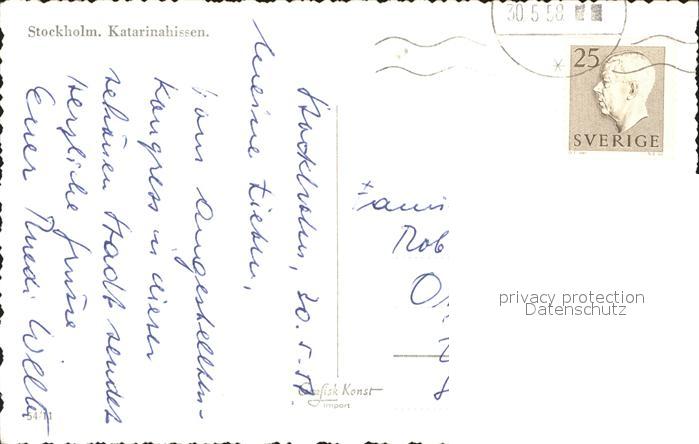 Stockholm. Katarinahissen.
30 5 58
25
SVERIGE
Stockholm, 30.5.58
Meine Lieben,
Vom Angestellten-
kongress in dieser
schönen Stadt sendet
herzliche Grüsse
Euer Ruedi
Fami
Rob
privacy protection
Datenschutz
Grafisk Konst
Import
54/11